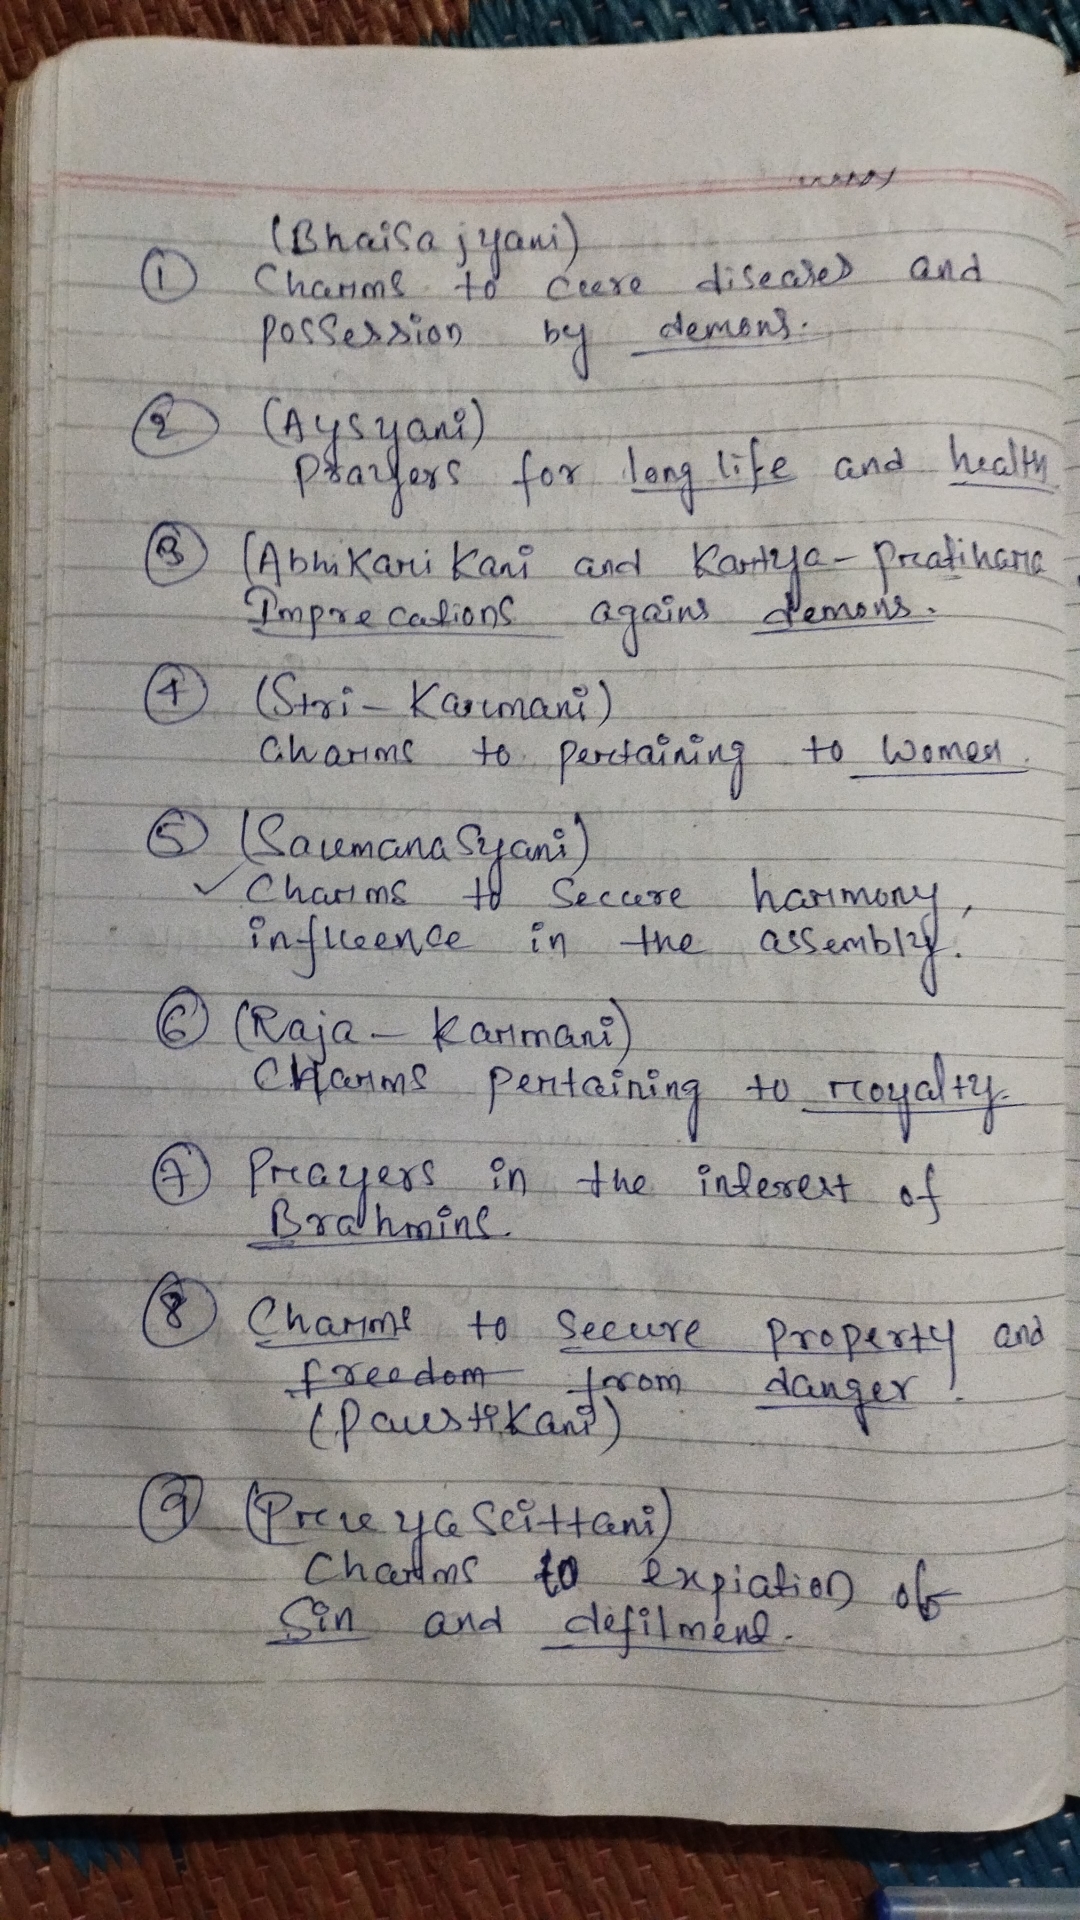 (Bhaisajyani)
① Charms to cure diseases and
possession by demons.
② (Aysyani)
Prayers for long life and health
③ (Abhikarikani and Kartya-pratihara
Imprecations agains demons.
④ (Stri-Karmani)
Charms to pertaining to Women.
⑤ (Saumanasyani)
✓ Charms to Secure harmony,
influence in the assembly.
⑥ (Raja-Karmani)
Charms pertaining to royalty.
⑦ Prayers in the interest of
Brahmins.
⑧ Charms to Secure property and
freedom from danger.
(Paustikani)
⑨ (Prueyascittani)
Charms to expiation of
Sin and defilment.